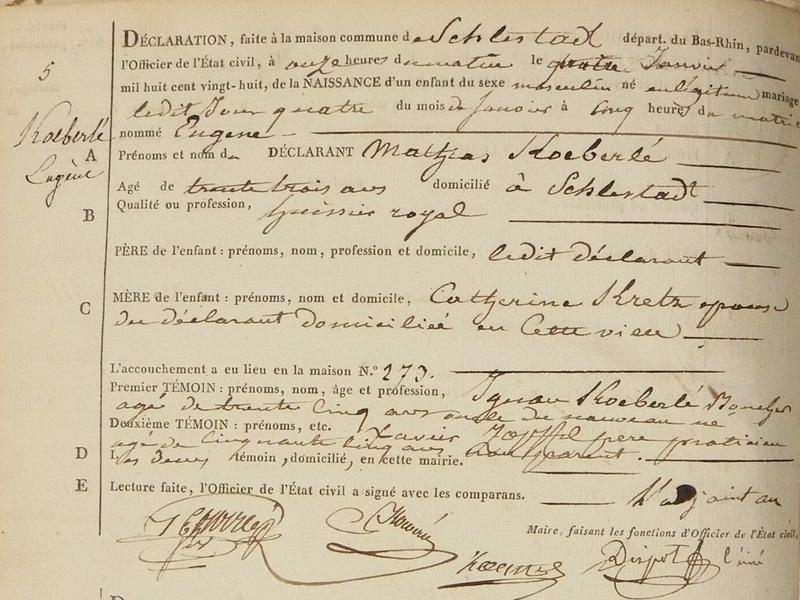 5
Koeberlé
Eugène
DÉCLARATION, faite à la maison commune de Schlestadt départ. du Bas-Rhin, pardevan
l'Officier de l'État civil, à onze heures du matin le quatre Janvier
mil huit cent vingt-huit, de la NAISSANCE d'un enfant du sexe masculin né en légitime mariage
ledit Jour quatre du mois de Janvier à cinq heures du matin
nommé Eugene
A Prénoms et nom du DÉCLARANT Mathias Koeberlé
Agé de trente trois ans domicilié à Schlestadt
B Qualité ou profession, huissier royal
PÈRE de l'enfant : prénoms, nom, profession et domicile, ledit déclarant
C MÈRE de l'enfant : prénoms, nom et domicile, Catherine Kretz epouse
du déclarant domiciliée en Cette ville
L'accouchement a eu lieu en la maison N.º 273.
Premier TÉMOIN : prénoms, nom, âge et profession, Ignace Koeberlé Boucher
agé de trente Cinq ans oncle du nouveau né
Deuxième TÉMOIN : prénoms, etc. Xavier père praticien
agé de Cinquante Cinq ans non parent.
D Les deux témoin, domicilié, en cette mairie.
E Lecture faite, l'Officier de l'État civil a signé avec les comparans. L'adjoint au
Maire, faisant les fonctions d'Officier de l'État civil,
Koeberlé
l'ainé